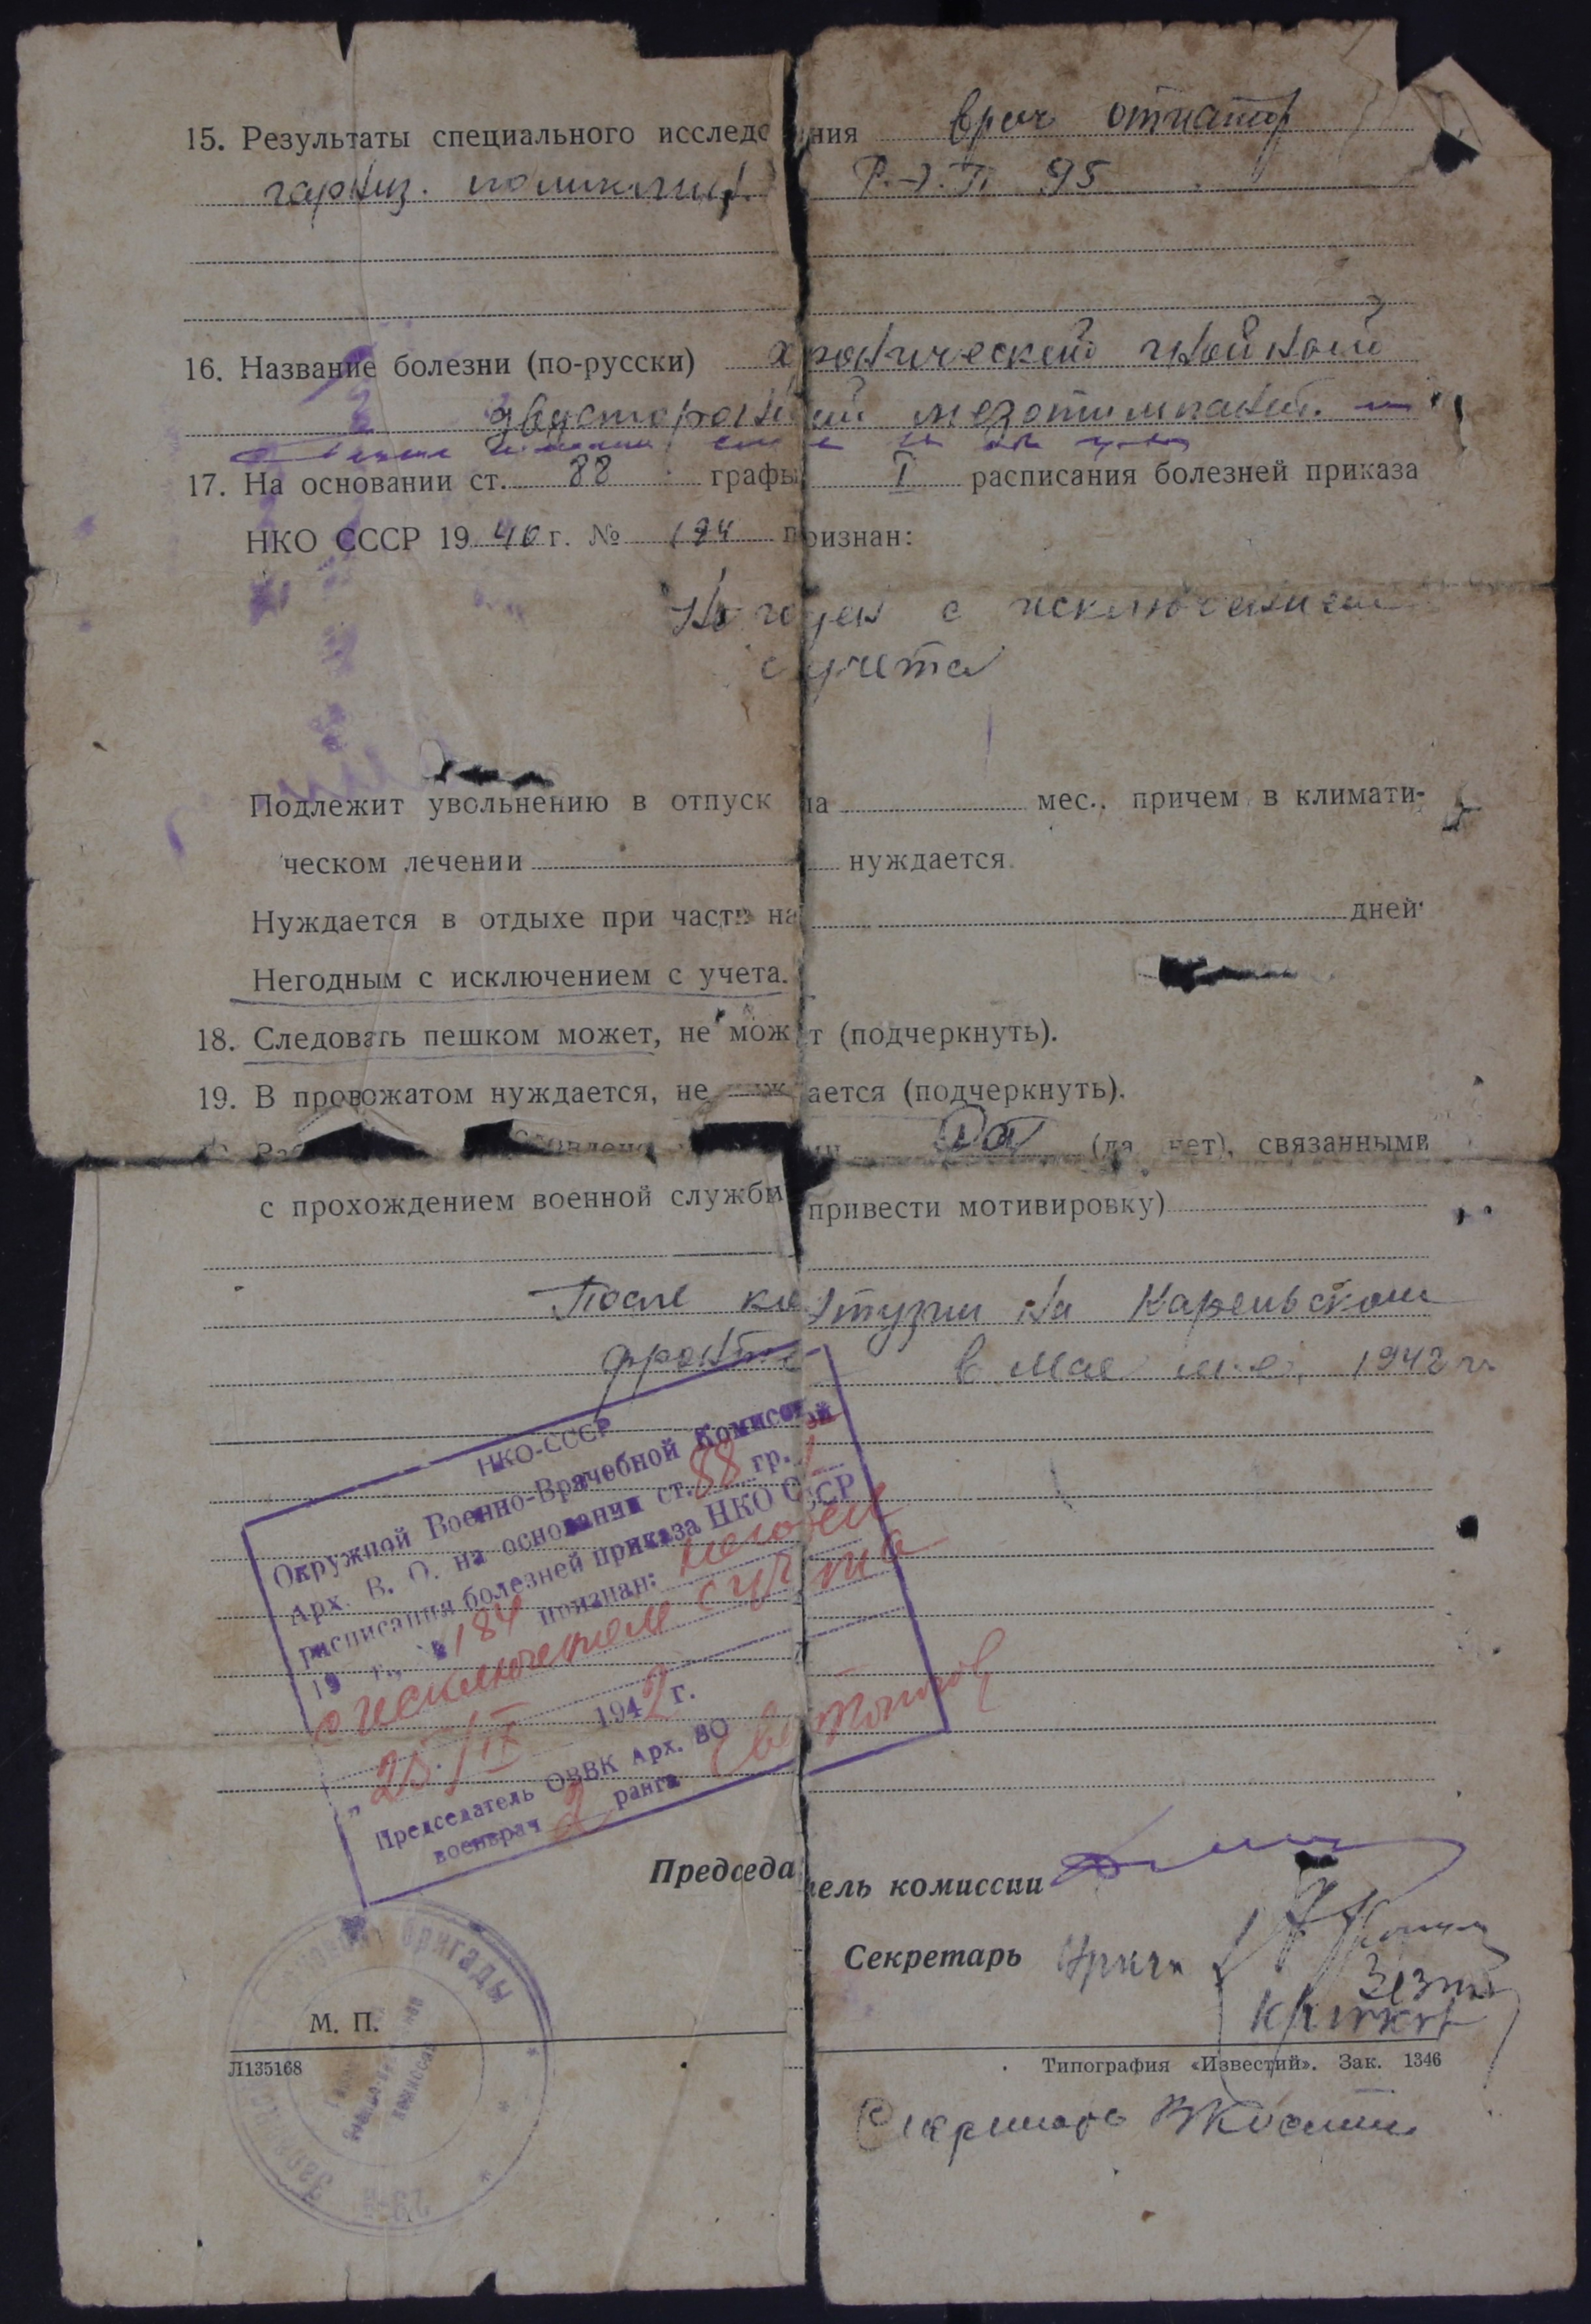 15. Результаты специального исследования врач отиатр
гарниз. поликлин. 95
16. Название болезни (по-русски) хронический гнойный
двусторонний мезотимпанит.
17. На основании ст. 88 графы I расписания болезней приказа
НКО СССР 1940 г. № 184 признан:
Не годен с исключением
с учета
Подлежит увольнению в отпуск на мес., причем в климати-
ческом лечении нуждается.
Нуждается в отдыхе при части на дней
Негодным с исключением с учета.
18. Следовать пешком может, не может (подчеркнуть).
19. В провожатом нуждается, не нуждается (подчеркнуть).
Да (да нет), связанными
с прохождением военной службы привести мотивировку)
После контузии на Карельском
фронте в мае м-це, 1942 г.
НКО-СССР
Окружной Военно-Врачебной Комиссией
Арх. В. О. на основании ст. 88 гр. I
расписания болезней приказа НКО СССР
19 г., № 184 признан: негоден
с исключением с учета
„25/IX 1942 г.
Председатель ОВВК Арх. ВО
военврач 2 ранга
Председатель комиссии
Секретарь
бригады
М. П.
Л135168
Типография «Известий». Зак. 1346
Секретарь